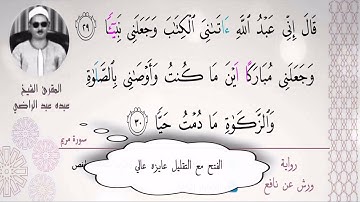 قَالَ إِنِّى عَبْدُ ٱللَّهِ ءَاتَىٰنِىَ ٱلْكِتَٰبَ وَجَعَلَنِى نَبِيٓـًٔا ٢٩
وَجَعَلَنِى مُبَارَكًا أَيْنَ مَا كُنتُ وَأَوْصَٰنِى بِالصَّلَوٰةِ
وَالزَّكَوٰةِ مَا دُمْتُ حَيًّا ٣٠
المقرئ الشيخ
عبده عبد الراضي
سورة مريم
رواية
ورش عن نافع
الفتح مع التقليل عايزه عالي